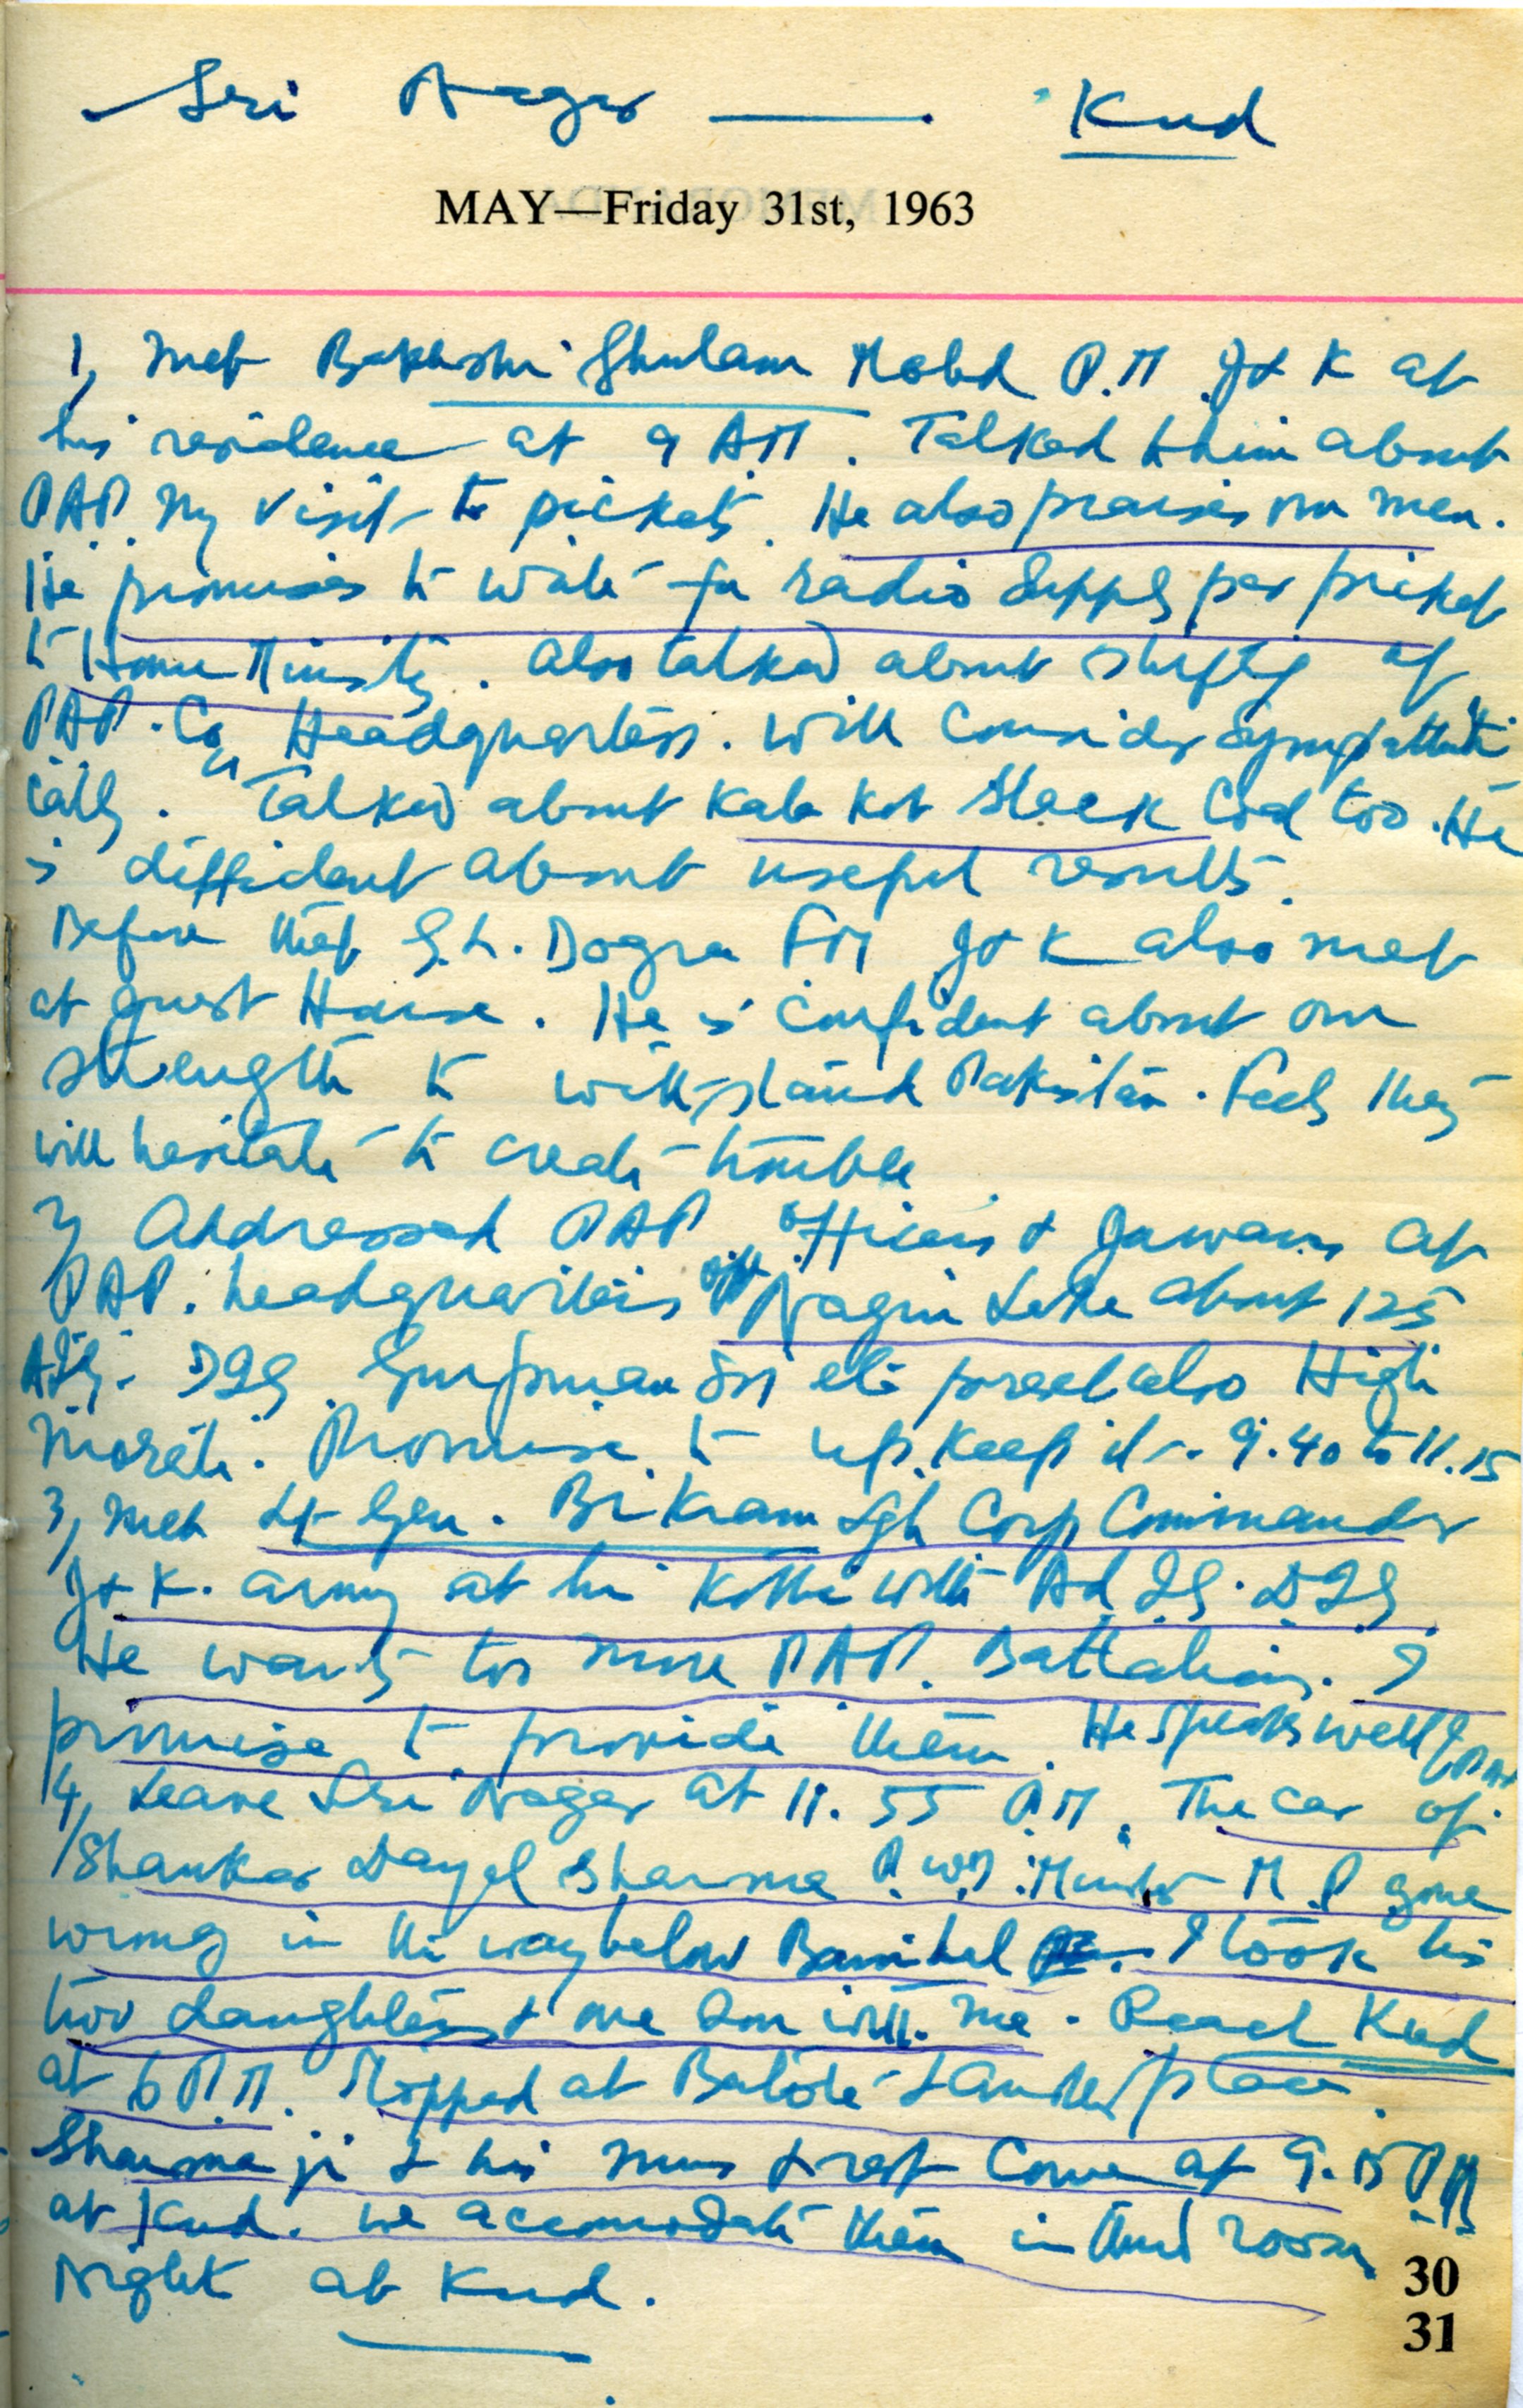 Sri Nagar — Kud
MAY—Friday 31st, 1963
1, Met Bakhshi Ghulam Mohd P.M J & K at
his residence at 9 A.M. Talked to him about
P.A.P. My visit to pickets. He also praises our men.
He promises to write for radio supply per picket
to Home Ministry. Also talked about shifting of
P.A.P. Co Headquarters. Will consider sympatheti
cally. Talked about Kala Kot Slack Coal too. He
is diffident about useful results.
Before that G.L. Dogra F.M J & K also met
at guest House. He is confident about our
strength to with-stand Pakistan. Feels they
will hesitate to create trouble
2, Addressed P.A.P. officers & Jawans at
P.A.P. headquarters Nagin Lake about 125
A.I.G. D.I.G. etc present also High
Morale. Promise to up keep it. 9.40 to 11.15
3, Met Lt Gen. Bikram Sgh Corp Commander
J & K. army at his Kothi with Ad I.G. D.I.G.
He wants two more P.A.P. Battalions. I
promise to provide them. He speaks well of PAP
4, Leave Sri Nagar at 11.55 P.M. The car of
Shankar Dayal Sharma P.W.D. Minister M.P gone
wrong in the way below Banihal I took his
two daughters & one son with me. Reach Kud
at 6 P.M. Stopped at Batote & another place.
Sharma ji & his Mrs & rest come at 9.15 P.M.
at Kud. We accomodate them in third room
Night at Kud.
30
31